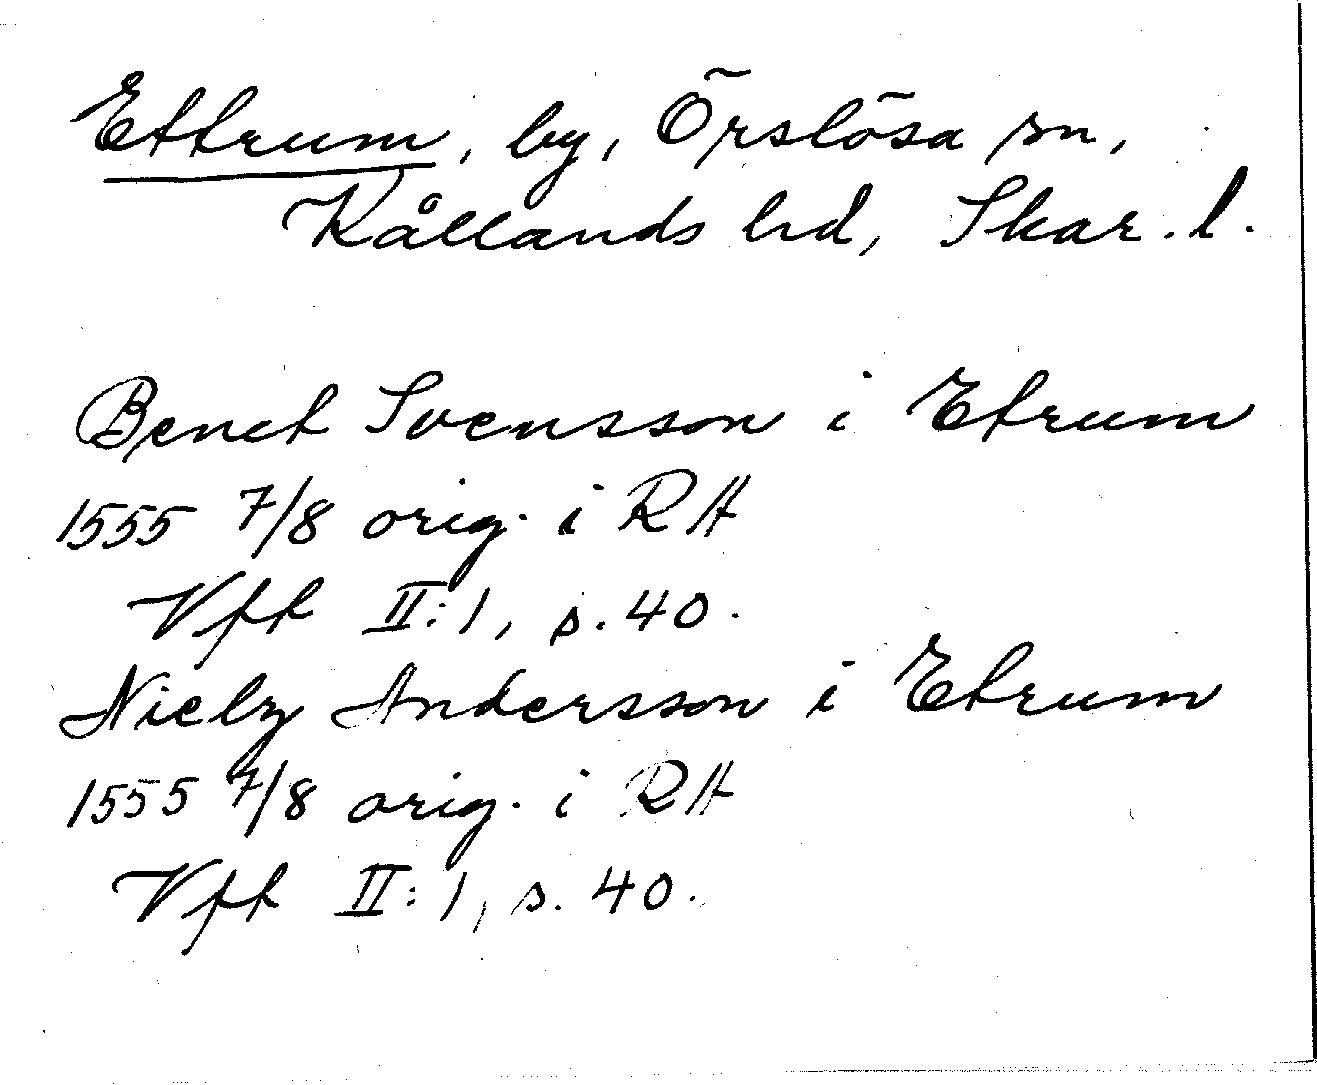 Ettrum, by, Örslösa sn,
Kållands hd, Skar. l.
Benct Svensson i Etrum
1555 7/8 orig. i RA
Vft II:1, s. 40.
Nielz Andersson i Etrum
1555 7/8 orig. i RA
Vft II:1, s. 40.